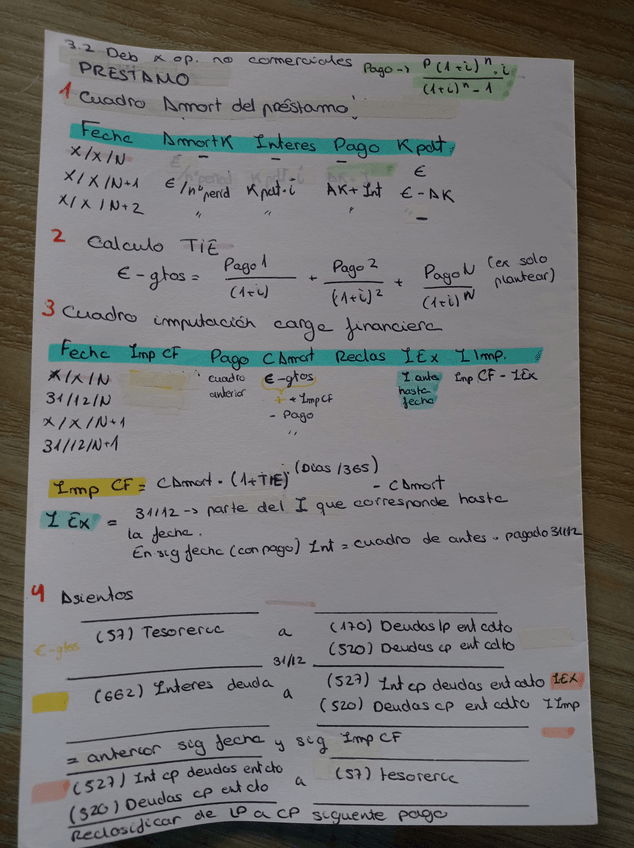 3.2 Deb x op. no comerciales Pago → P(1+i)^n · i / (1+i)^n - 1
PRÉSTAMO
1 Cuadro Amort del préstamo:
Fecha AmortK Interes Pago K pdt
X/X/N - - - €
X/X/N+1 €/nº perid K pdt · i AK + Int € - AK
X/X/N+2 " " " -
2 Calculo TIE
€ - gtos = Pago 1 / (1+i) + Pago 2 / (1+i)^2 + Pago N / (1+i)^N (ex solo plantear)
3 Cuadro imputación carga financiera
Fecha Imp CF Pago CAmort Reclas IEx I Imp.
X/X/N cuadro € - gtos I antes Imp CF - IEx
31/12/N anterior + + Imp CF hasta
X/X/N+1 - Pago fecha
31/12/N+1 "
Imp CF = CAmort · (1+TIE)^(Días/365) - CAmort
I Ex = 31/12 → parte del I que corresponde hasta
la fecha.
En sig fecha (con pago) Int = cuadro de antes - pagado 31/12
4 Asientos
€ - gtos (57) Tesoreria a (170) Deudas lp ent cdto
(520) Deudas cp ent cdto
31/12
(662) Interes deuda a (527) Int cp deudas ent cdto IEX
(520) Deudas cp ent cdto I Imp
= anterior sig fecha y sig Imp CF
(527) Int cp deudas ent cto a (57) tesoreria
(520) Deudas cp ent cto
Reclasificar de LP a CP siguente pago